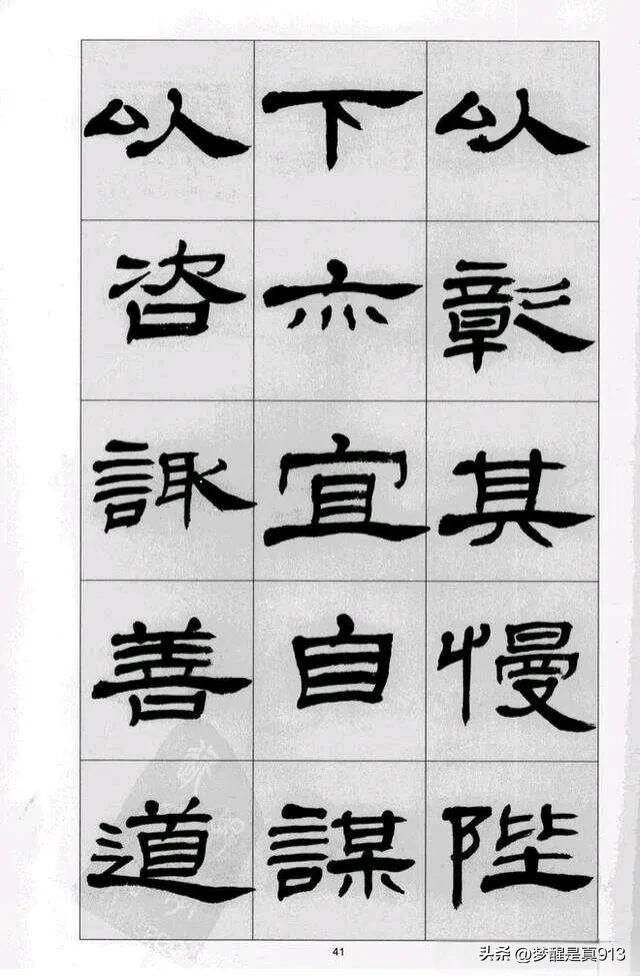 以彰其慢陛
下亦宜自謀
以咨諏善道
41
头条 @梦醒是真913